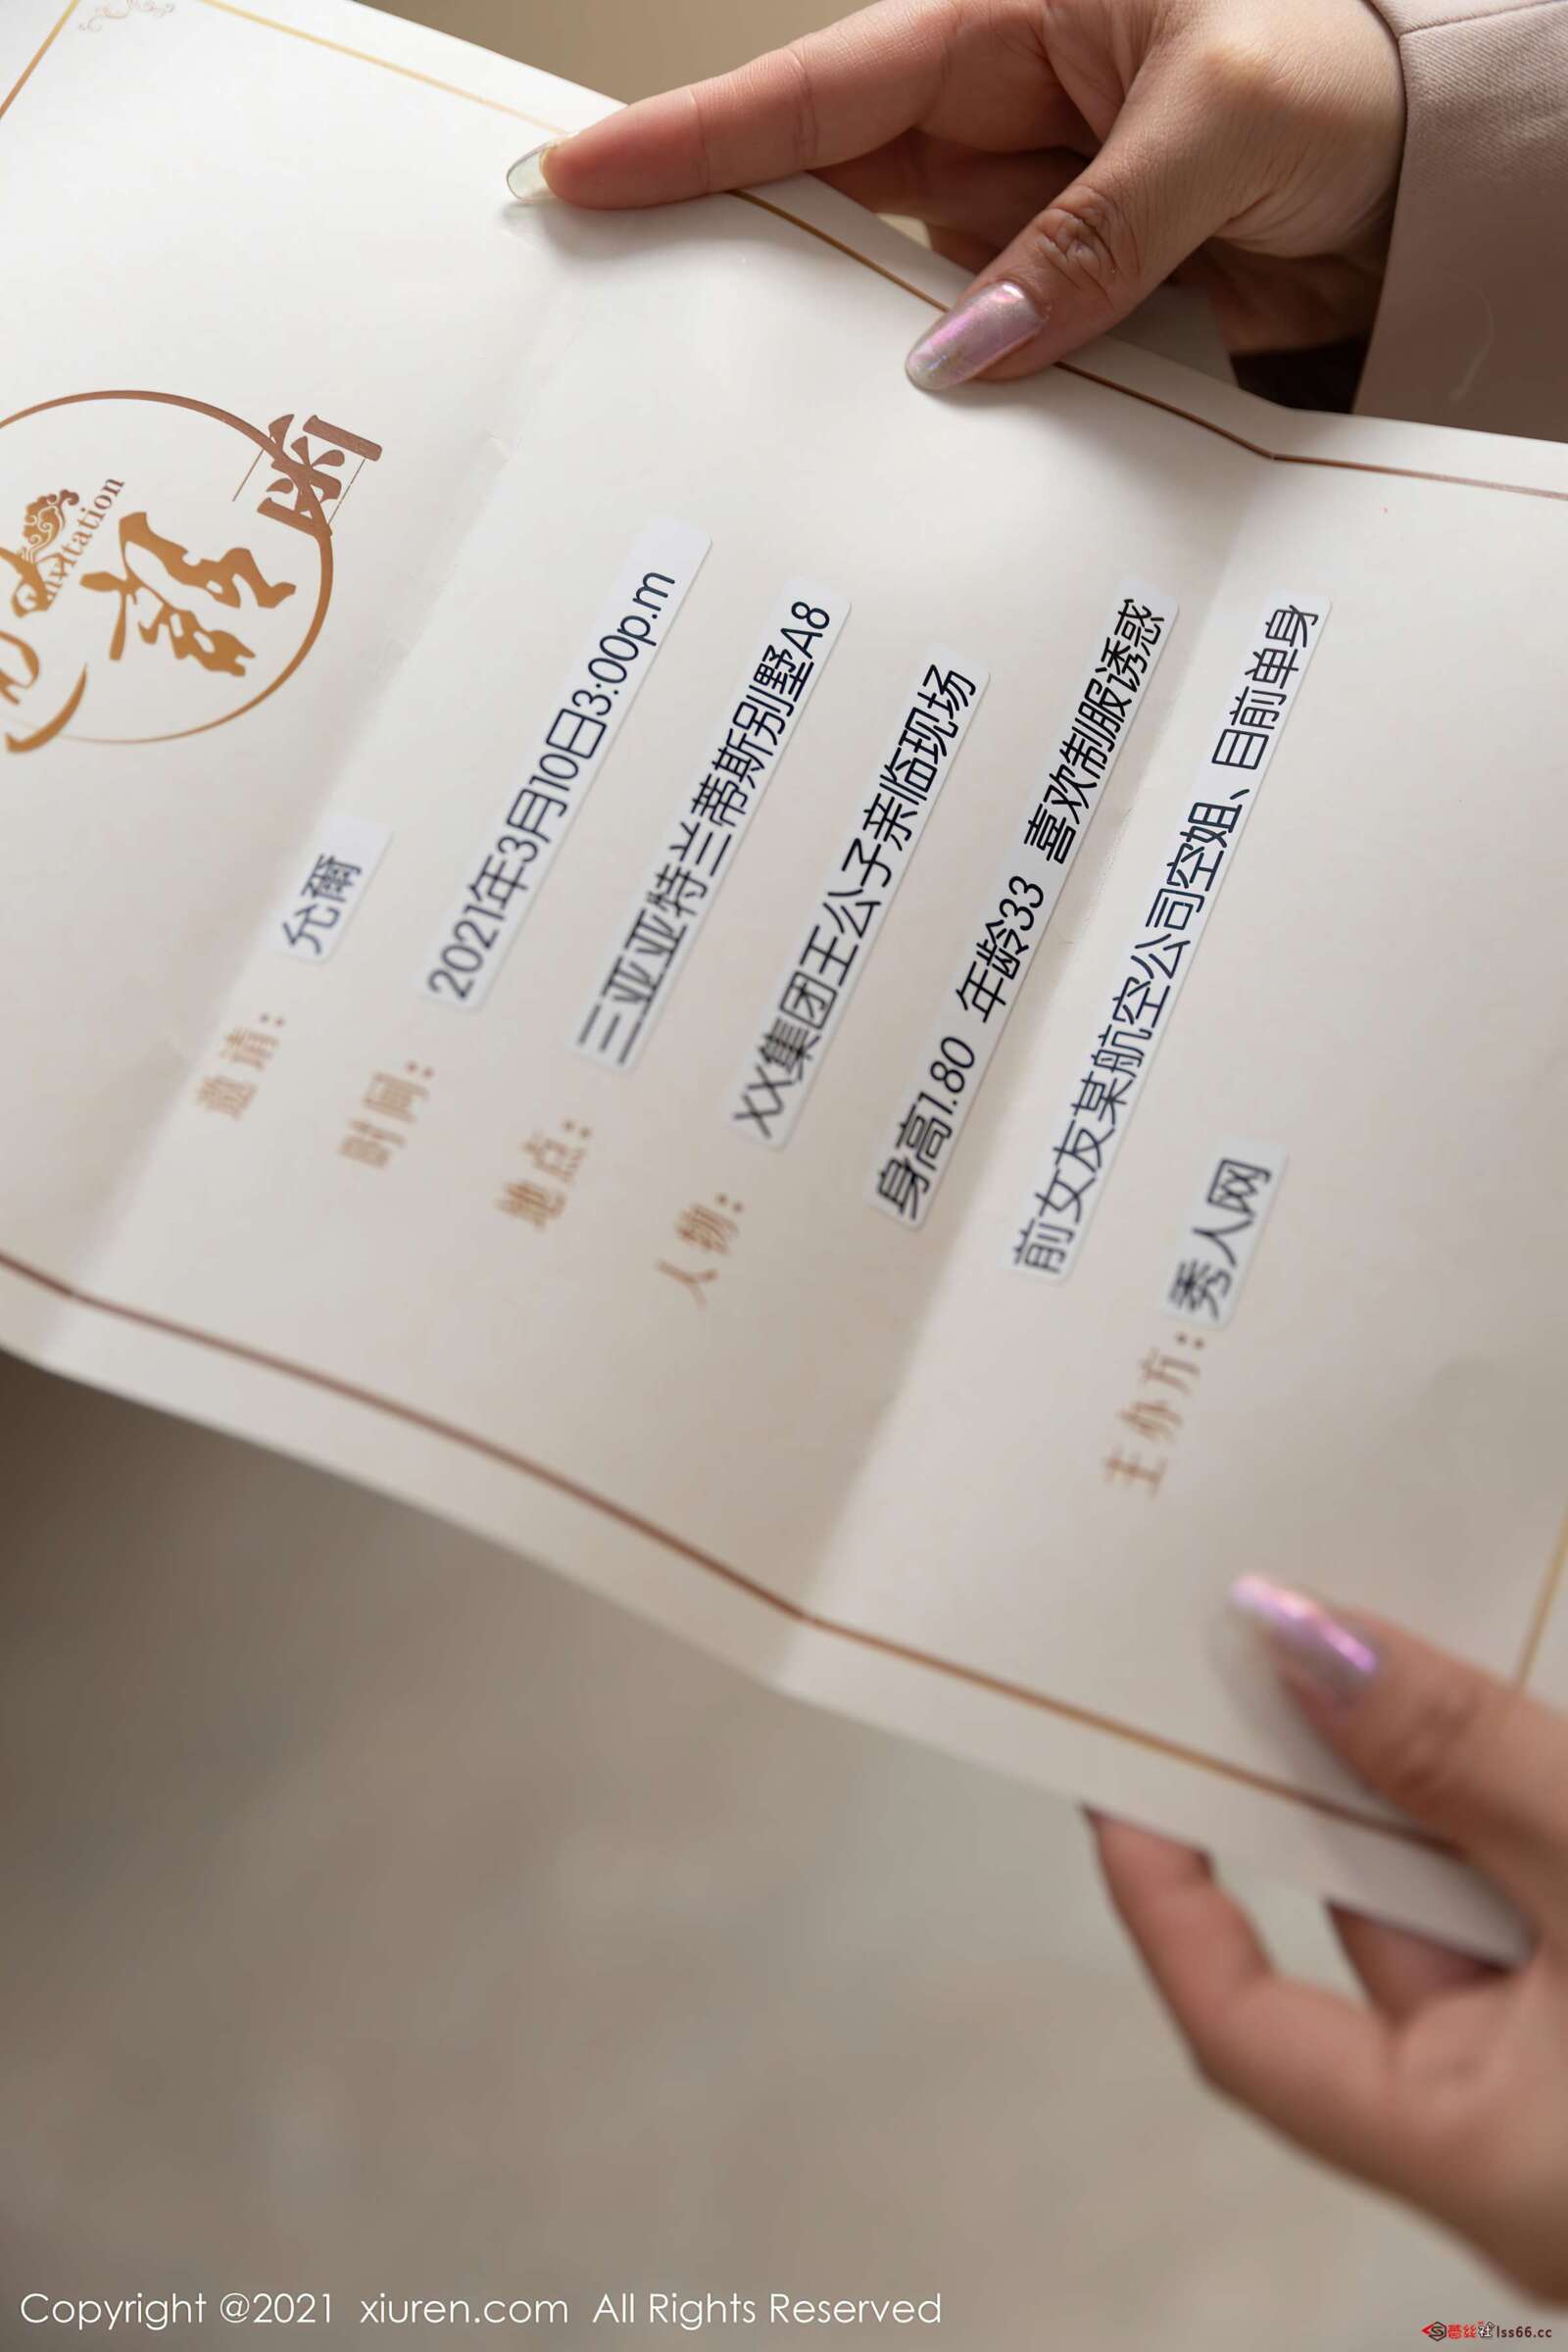 函
Invitation
邀请：允爾
时间：2021年3月10日3:00p.m
地点：三亚亚特兰蒂斯别墅A8
人物：XX集团王公子亲临现场
身高1.80 年龄33 喜欢制服诱惑
前女友某航空公司空姐、目前单身
主办方：秀人网
Copyright @2021 xiuren.com All Rights Reserved
蕾丝社lss66.cc